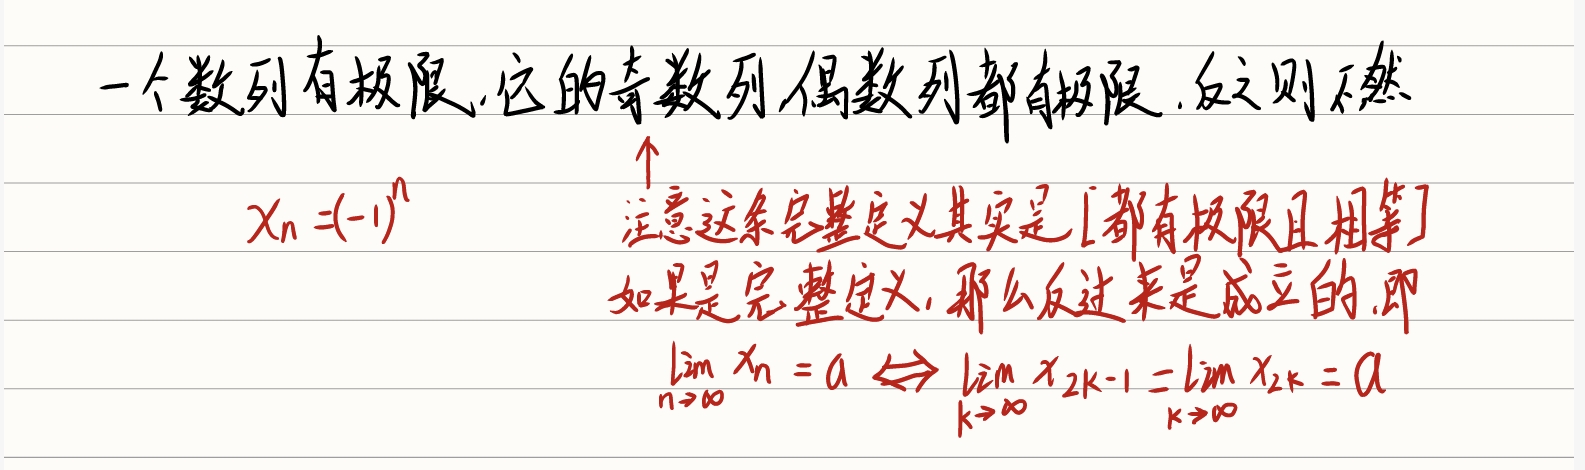 一个数列有极限,它的奇数列,偶数列都有极限.反之则不然
↑
xₙ=(-1)ⁿ 注意这条完整定义其实是[都有极限且相等]
如果是完整定义,那么反过来是成立的,即
lim_{n→∞} xₙ = a ⇔ lim_{k→∞} x_{2k-1} = lim_{k→∞} x_{2k} = a